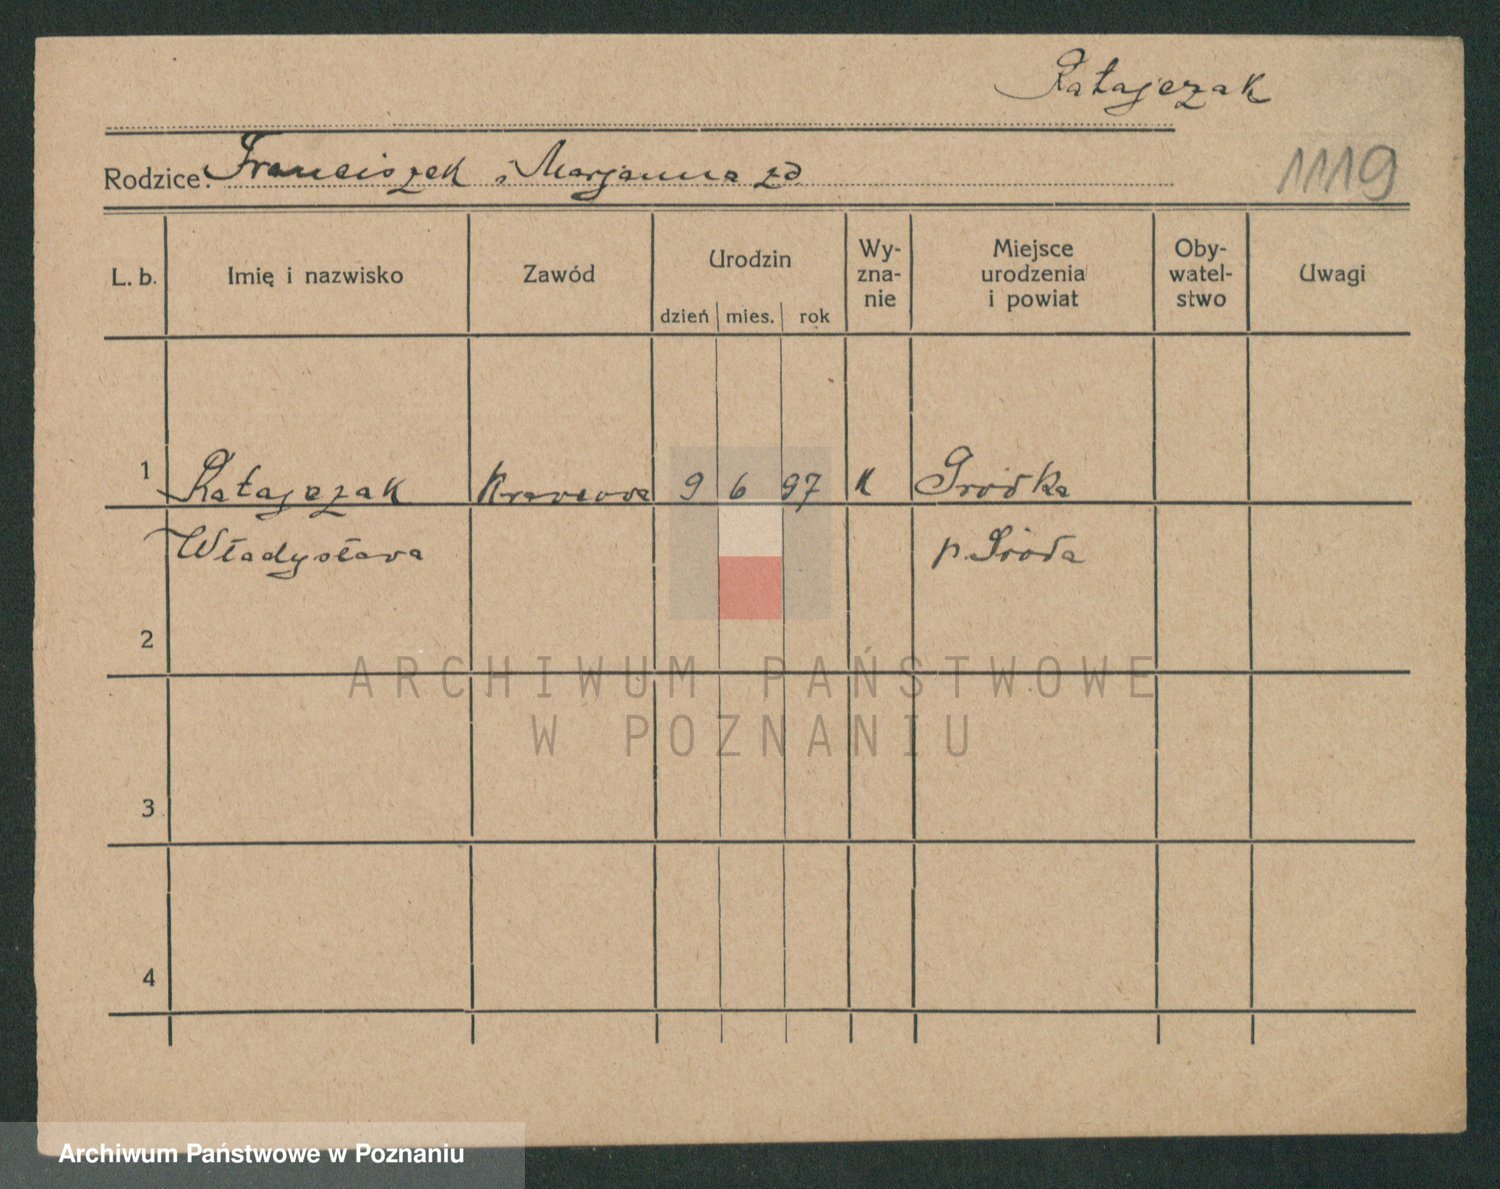 Ratajczak
Rodzice: Franciszek i Marjanna zd
1119
L. b. Imię i nazwisko Zawód Urodzin Wy-zna-nie Miejsce urodzenia i powiat Oby-watel-stwo Uwagi
dzień mies. rok
1 Ratajczak Krawcowa 9 6 97 K
Władysława p. Środa
2
3
4
ARCHIWUM PAŃSTWOWE
W POZNANIU
Archiwum Państwowe w Poznaniu